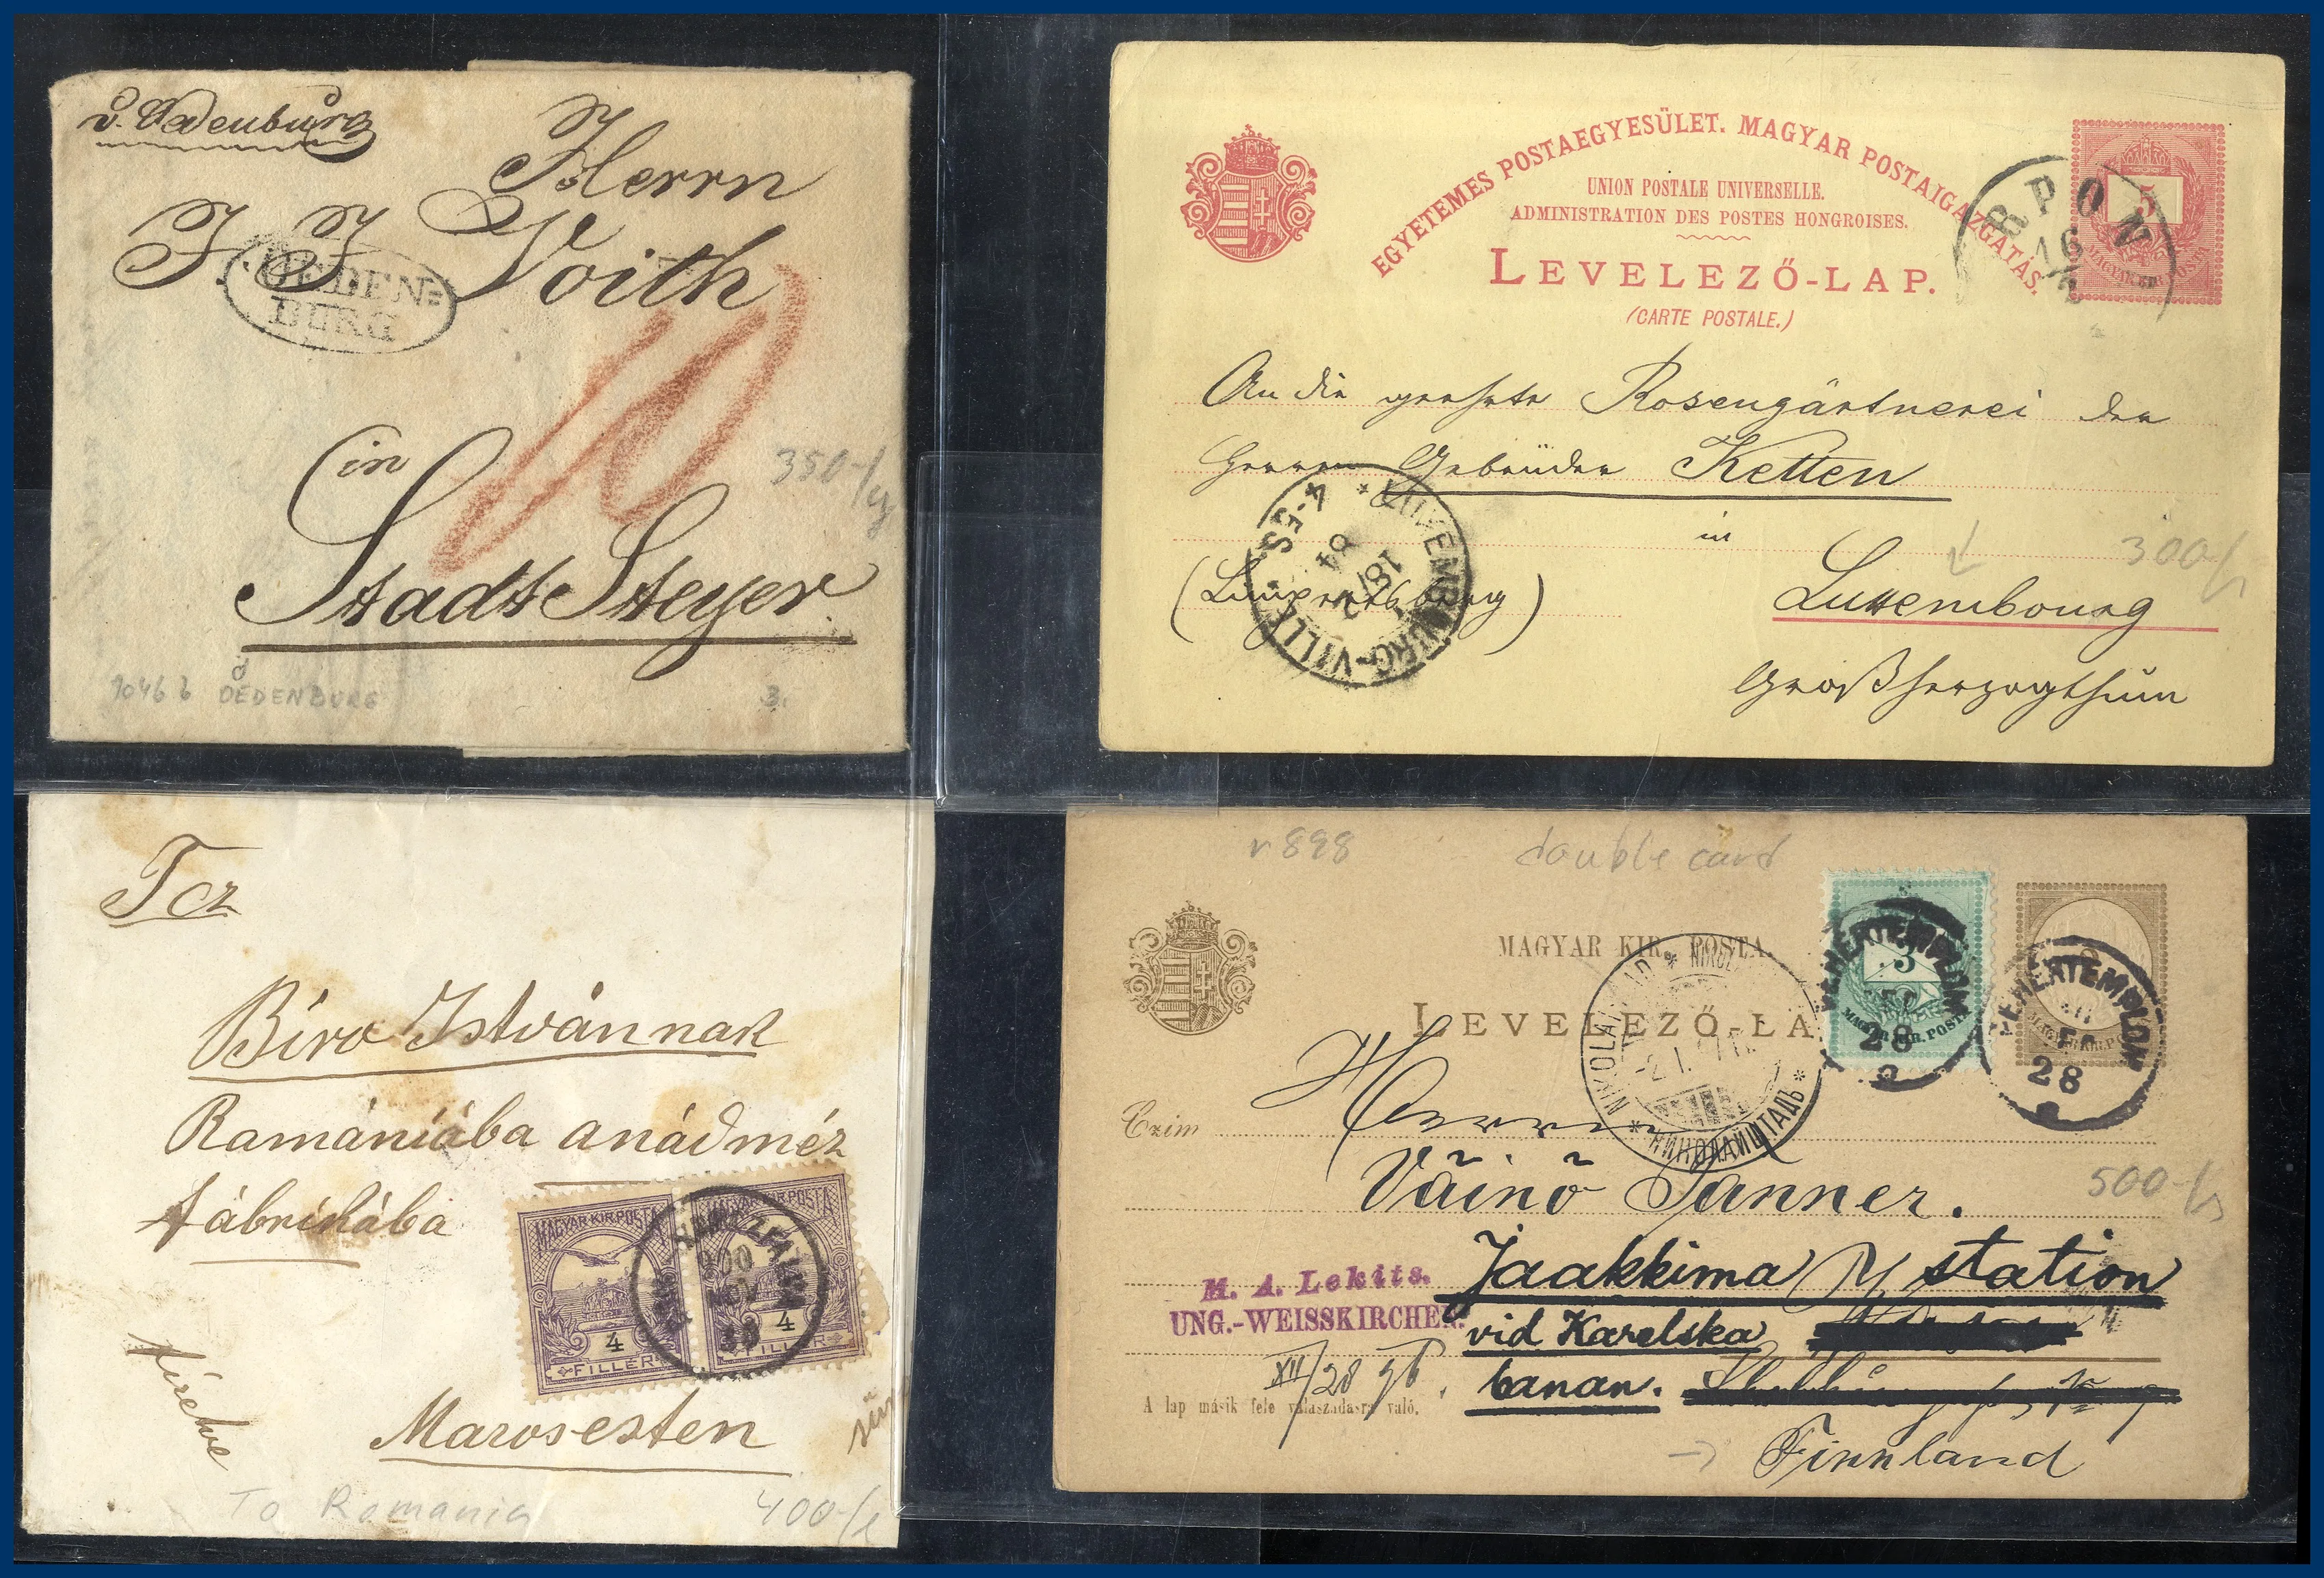 v. Oedenburg
Herrn
J. J. Voith
OEDEN=
BURG
10
in
350-/
Stadt Steyer
1046 b OEDENBURG
3.
EGYETEMES POSTAEGYESÜLET. MAGYAR POSTAIGAZGATÁS.
UNION POSTALE UNIVERSELLE.
ADMINISTRATION DES POSTES HONGROISES.
LEVELEZŐ-LAP.
(CARTE POSTALE.)
5
MAGYAR KIR. POSTA
RPON
16
An die geehrte Rosengärtnerei der
Herren Gebrüder Ketten
in
300/
(Limpertsberg)
Luxembourg
Großherzogthum
LUXEMBOURG-VILLE
4-5S
18/2
84
Tcz
Biro Istvánnak
Romániába anádméz
fábrikába
MAGYAR KIR. POSTA
4
FILLÉR
MAGYAR KIR. POSTA
4
FILLÉR
900
NOV
Marosesten
To Romania
400-/
1898
double card
MAGYAR KIR. POSTA.
LEVELEZŐ-LA
3
MAGYAR KIR. POSTA
FEHÉRTEMPLOM
28
FEHÉRTEMPLOM
28
NIKOLAISTAD
НИКОЛАЙШТАДЪ
Czim
Herrn
Väinö Tanner.
500-/
Jaakkima Ry station
vid Karelska
banan.
M. A. Lekits.
UNG.-WEISSKIRCHEN.
XII/28 96.
A lap másik fele válaszadásra való.
Finnland